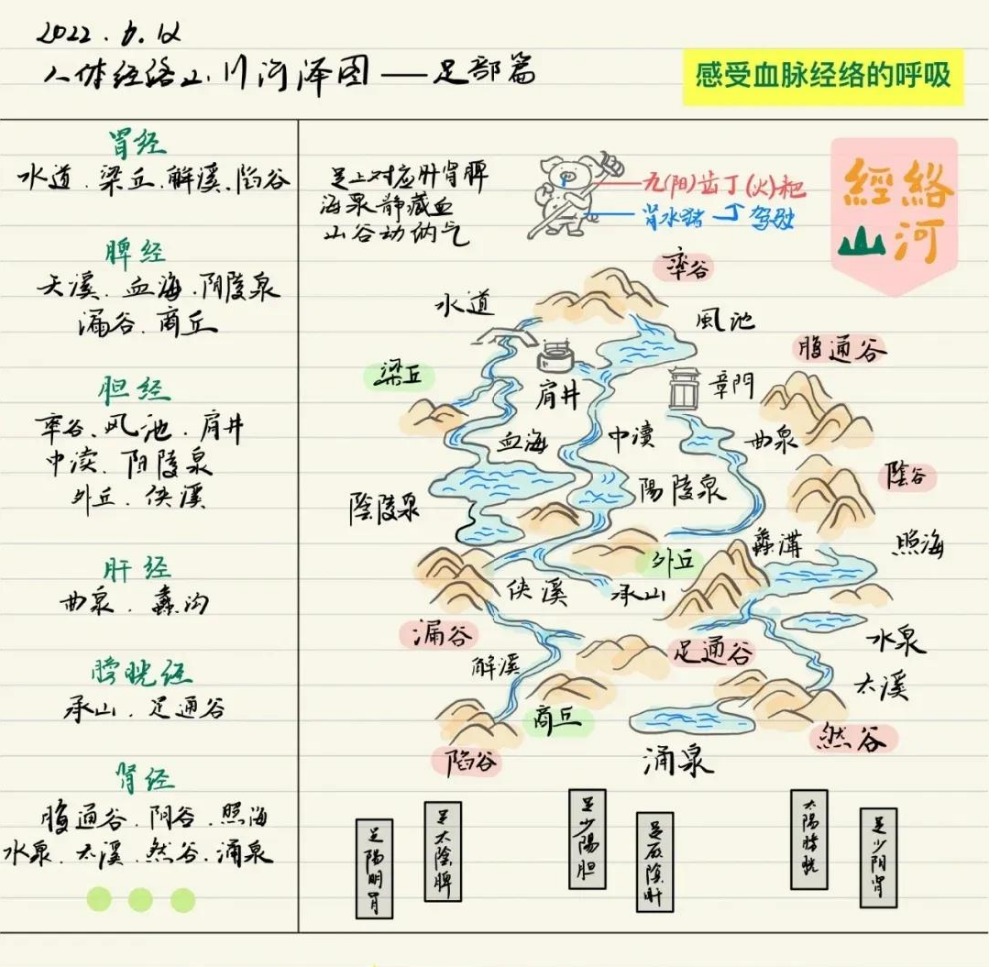 2022.6.12
人体经络山川河泽图——足部篇
感受血脉经络的呼吸
胃经
水道.梁丘.解溪.陷谷
脾经
天溪.血海.阴陵泉
漏谷.商丘
胆经
率谷、风池.肩井
中渎.阳陵泉
外丘.侠溪
肝经
曲泉.蠡沟
膀胱经
承山.足通谷
肾经
腹通谷.阴谷.照海
水泉.太溪.然谷.涌泉
足上对应肝肾脾
海泉静藏血
山谷动纳气
九(阳)齿丁(火)耙
肾水猪
驾驶
經絡
山河
率谷
水道
風池
腹通谷
梁丘
肩井
章門
血海
中瀆
曲泉
陰谷
陰陵泉
陽陵泉
外丘
蠡溝
照海
侠溪
承山
漏谷
足通谷
水泉
解溪
太溪
商丘
然谷
陷谷
涌泉
足陽明胃
足太陰脾
足少陽胆
足厥陰肝
太陽膀胱
足少阴肾